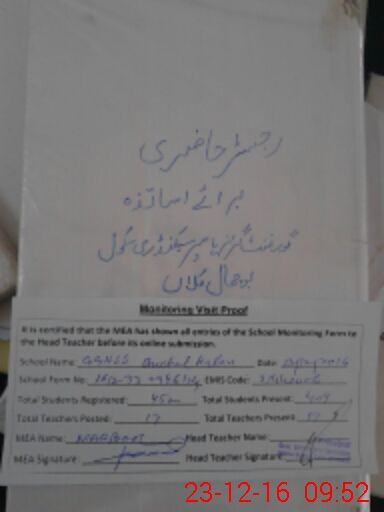 رجسٹر حاضری
برائے اساتذہ
گورنمنٹ گرلز ہائیر سیکنڈری سکول
بوچھال کلاں
Monitoring Visit Proof
It is certified that the MEA has shown all entries of the School Monitoring Form to
the Head Teacher before its online submission.
School Name: GGHSS Buchal Kalan Date:
School Form No: EMIS Code:
Total Students Registered: 452 Total Students Present: 409
Total Teachers Posted: 17 Total Teachers Present: 17
MEA Name: Head Teacher Name:
MEA Signature: Head Teacher Signature:
23-12-16 09:52